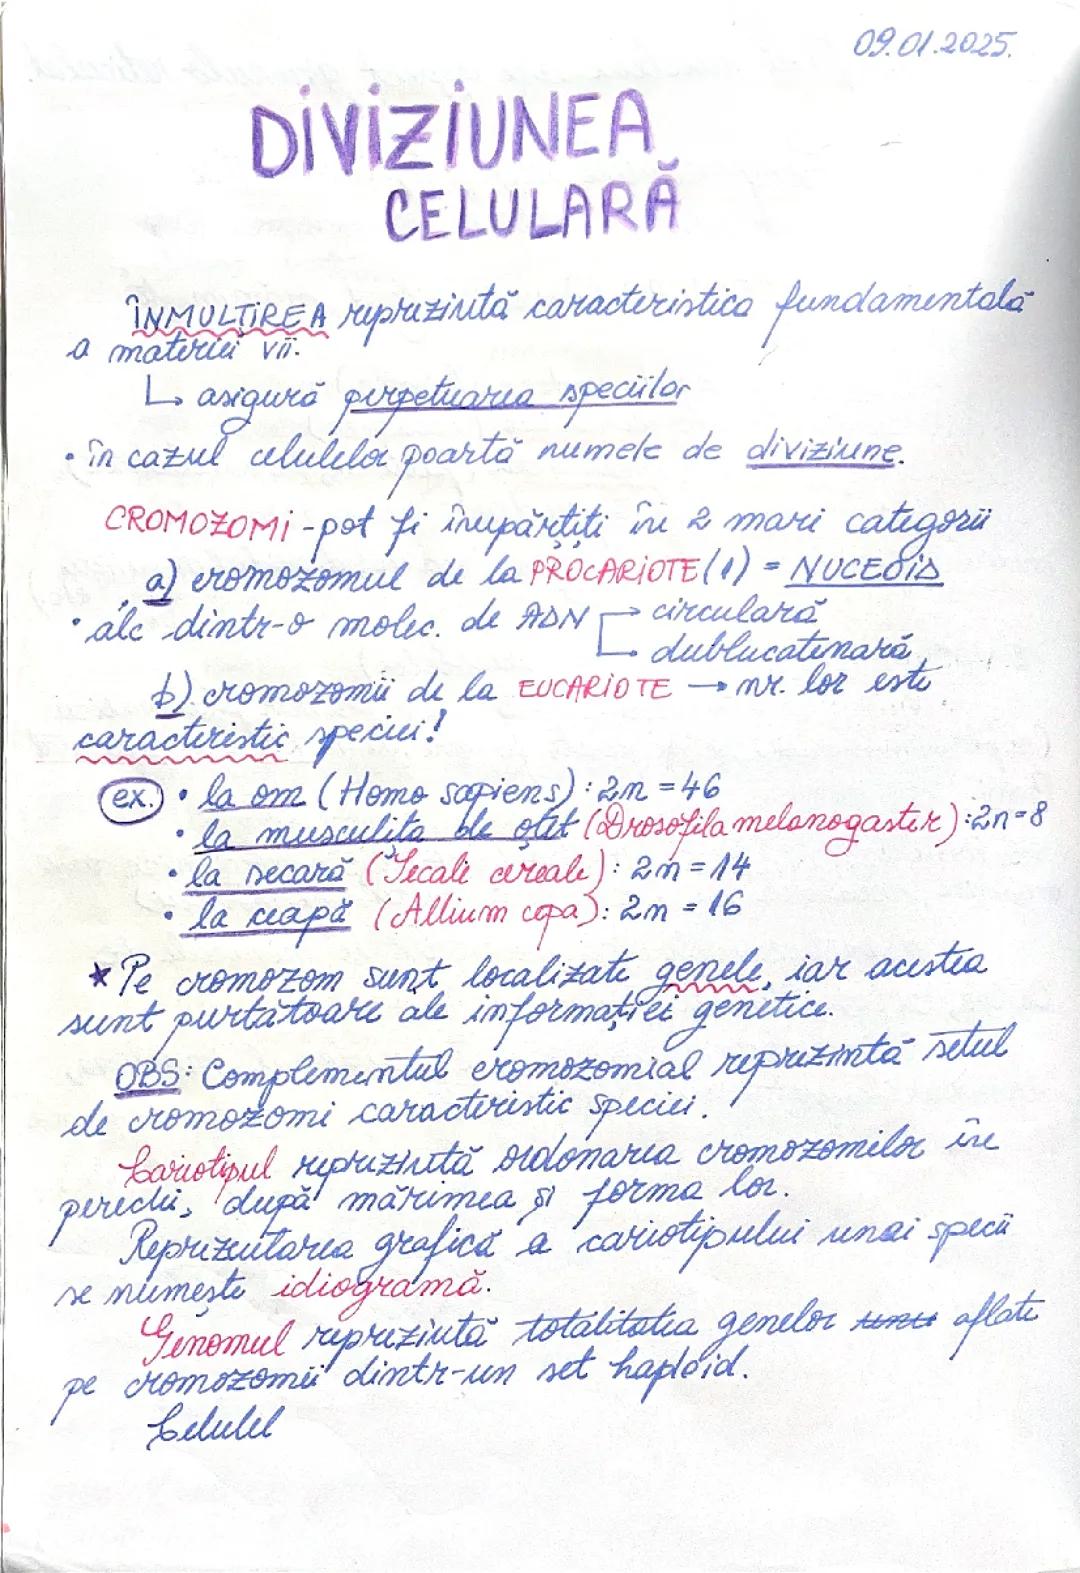 09.01.2025.
DIVIZIUNEA
CELULARĂ
ÎNMULȚIREA reprezintă caracteristica fundamentală
a materiei vii.
↳ asigură perpetuarea speciilor
• în cazul celulelor poartă numele de diviziune.
CROMOZOMI - pot fi împărțiți în 2 mari categorii
a) cromozomul de la PROCARIOTE (1) = NUCEOID
• alc dintr-o molec. de ADN → circulară
→ dublucatenară
b) cromozomii de la EUCARIOTE → nr. lor este
caracteristic speciei!
ex. • la om (Homo sapiens): 2n = 46
• la musculița de oțet (Drosofila melanogaster): 2n=8
• la secară (Secale cereale): 2n = 14
• la ceapă (Allium cepa): 2n = 16
* Pe cromozom sunt localizate genele, iar acestea
sunt purtătoare ale informației genetice.
OBS: Complementul cromozomial reprezintă setul
de cromozomi caracteristic speciei.
Cariotipul reprezintă ordonarea cromozomilor în
perechi, după mărimea și forma lor.
Reprezentarea grafică a cariotipului unei specii
se numește idiogramă.
Genomul reprezintă totalitatea genelor aflate
pe cromozomii dintr-un set haploid.
Celulel